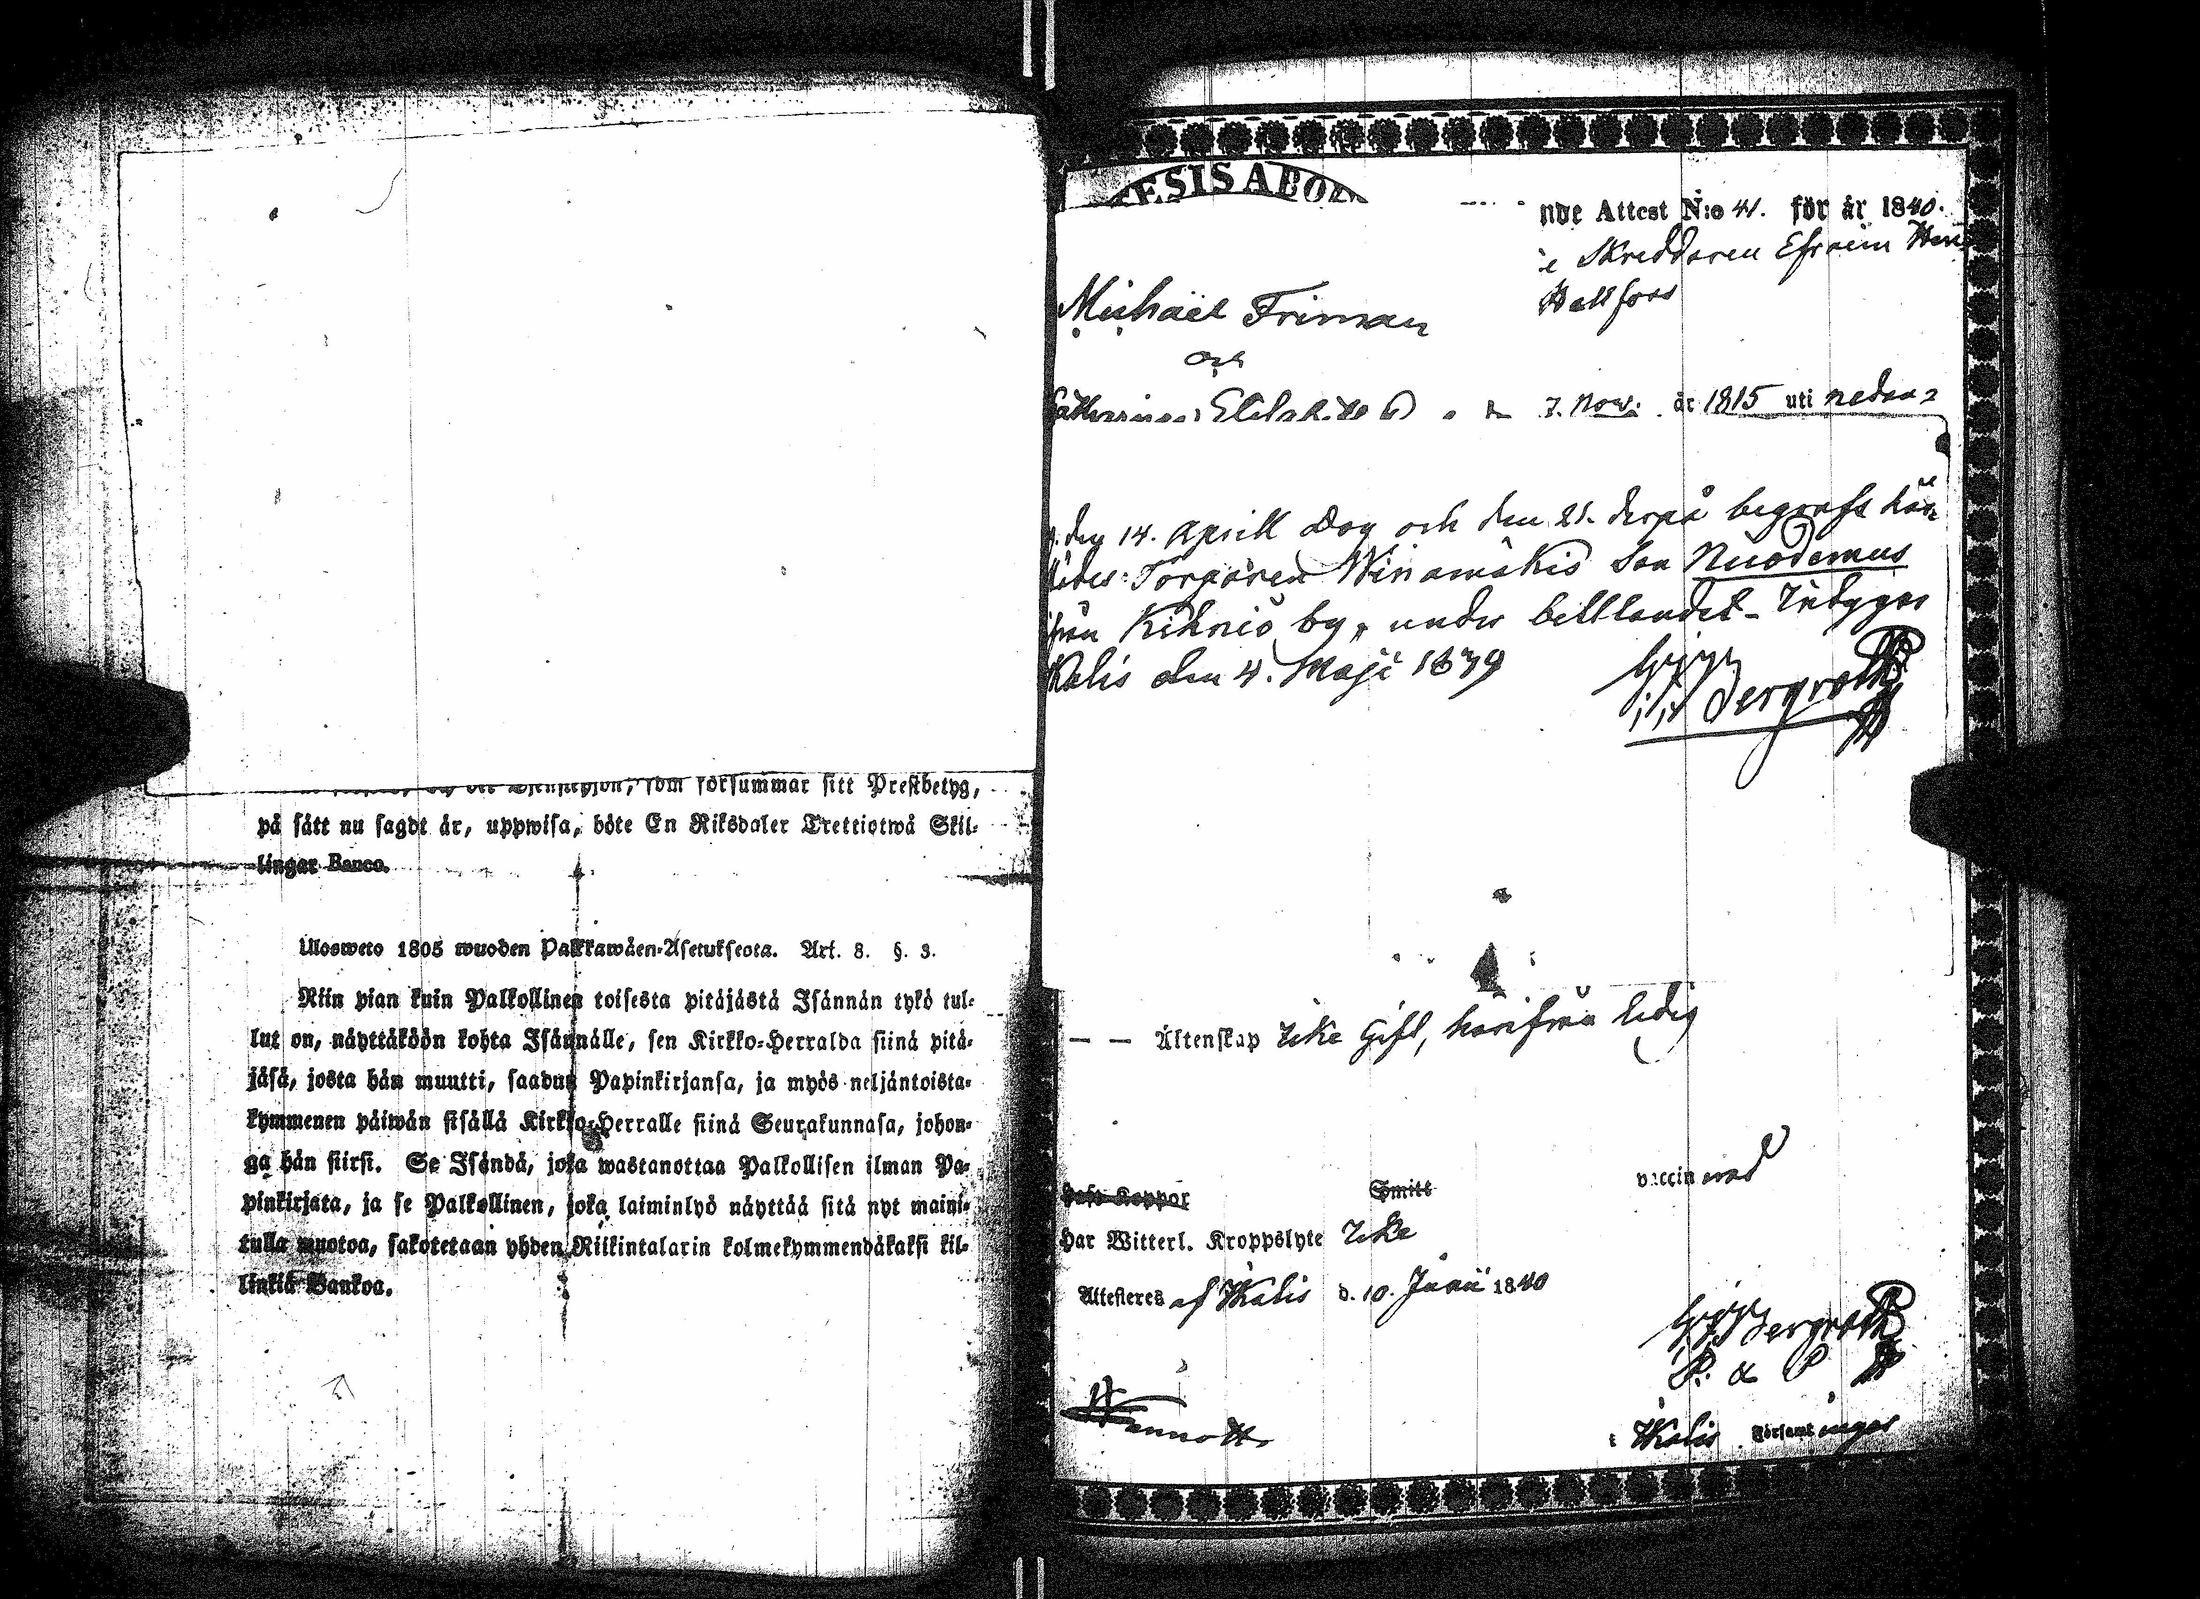 som försummar sitt Prestbetyg,
på sätt nu sagdt är, uppwisa, böte En Riksdaler Trettiotwå Skil-
lingar Banco.
Ulosweto 1805 wuoden Palkkawäen-Asetuksesta. Art. 8. §. 3.
Niin pian kuin Palkollinen toisesta pitäjästä Isännän tykö tul-
lut on, näyttäköön kohta Isännälle, sen Kirkko-Herralda siinä pitä-
jäsä, josta hän muutti, saadun Papinkirjansa, ja myös neljäntoista-
kymmenen päiwän sisällä Kirkko-Herralle siinä Seurakunnasa, johon-
ga hän siirsi. Se Isändä, joka wastanottaa Palkollisen ilman Pa-
pinkirjata, ja se Palkollinen, joka laiminlyö näyttää sitä nyt maini-
tulla muotoa, sakotetaan yhden Riikintalarin kolmekymmendäkaksi kil-
linkiä Bankoa.
ESIS ABO
nde Attest N:o 41. för år 1840.
Skreddaren Efraim
Hellfors
Michaël Friman
och
Catharina Elisab. 7. Nov. år 1815 uti nedan
den 14. Aprill Dog och den 21. derpå begrofs här
Torparen Winamäkis Son Nicodemus
från Kihniö by, under bettlandet. Intygar
Ikalis den 4. Maji 1839
Äktenskap Icke Gift, härifrån ledig
Haft Koppor Smitt vaccinerad
Har Witterl. Kroppslyte Icke
Attesteres af Ikalis d. 10. Junii 1840
P. &
i Ikalis Församlingar